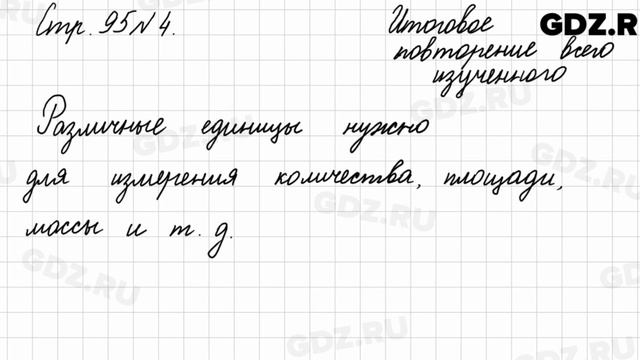 Стр. 95 № 4.
Итоговое
повторение всего
изученного
GDZ.R
Различные единицы нужно
для измерения количества, площади,
массы и т. д.
GDZ.RU
GDZ.RU
GDZ.RU
GDZ.RU
GDZ.RU
GDZ.RU